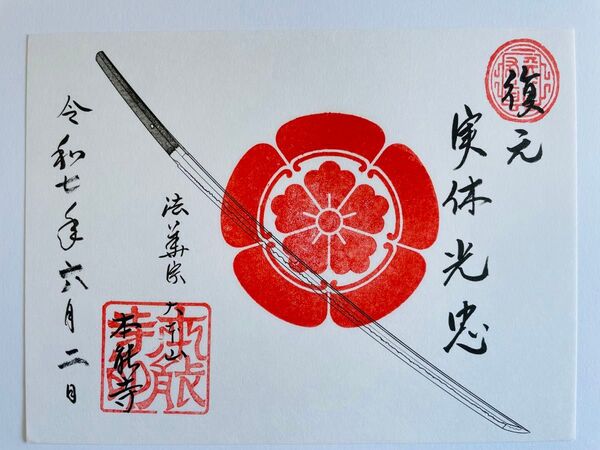 復元
実休光忠
法華宗 大本山
本能寺
本能寺印
令和七年六月二日